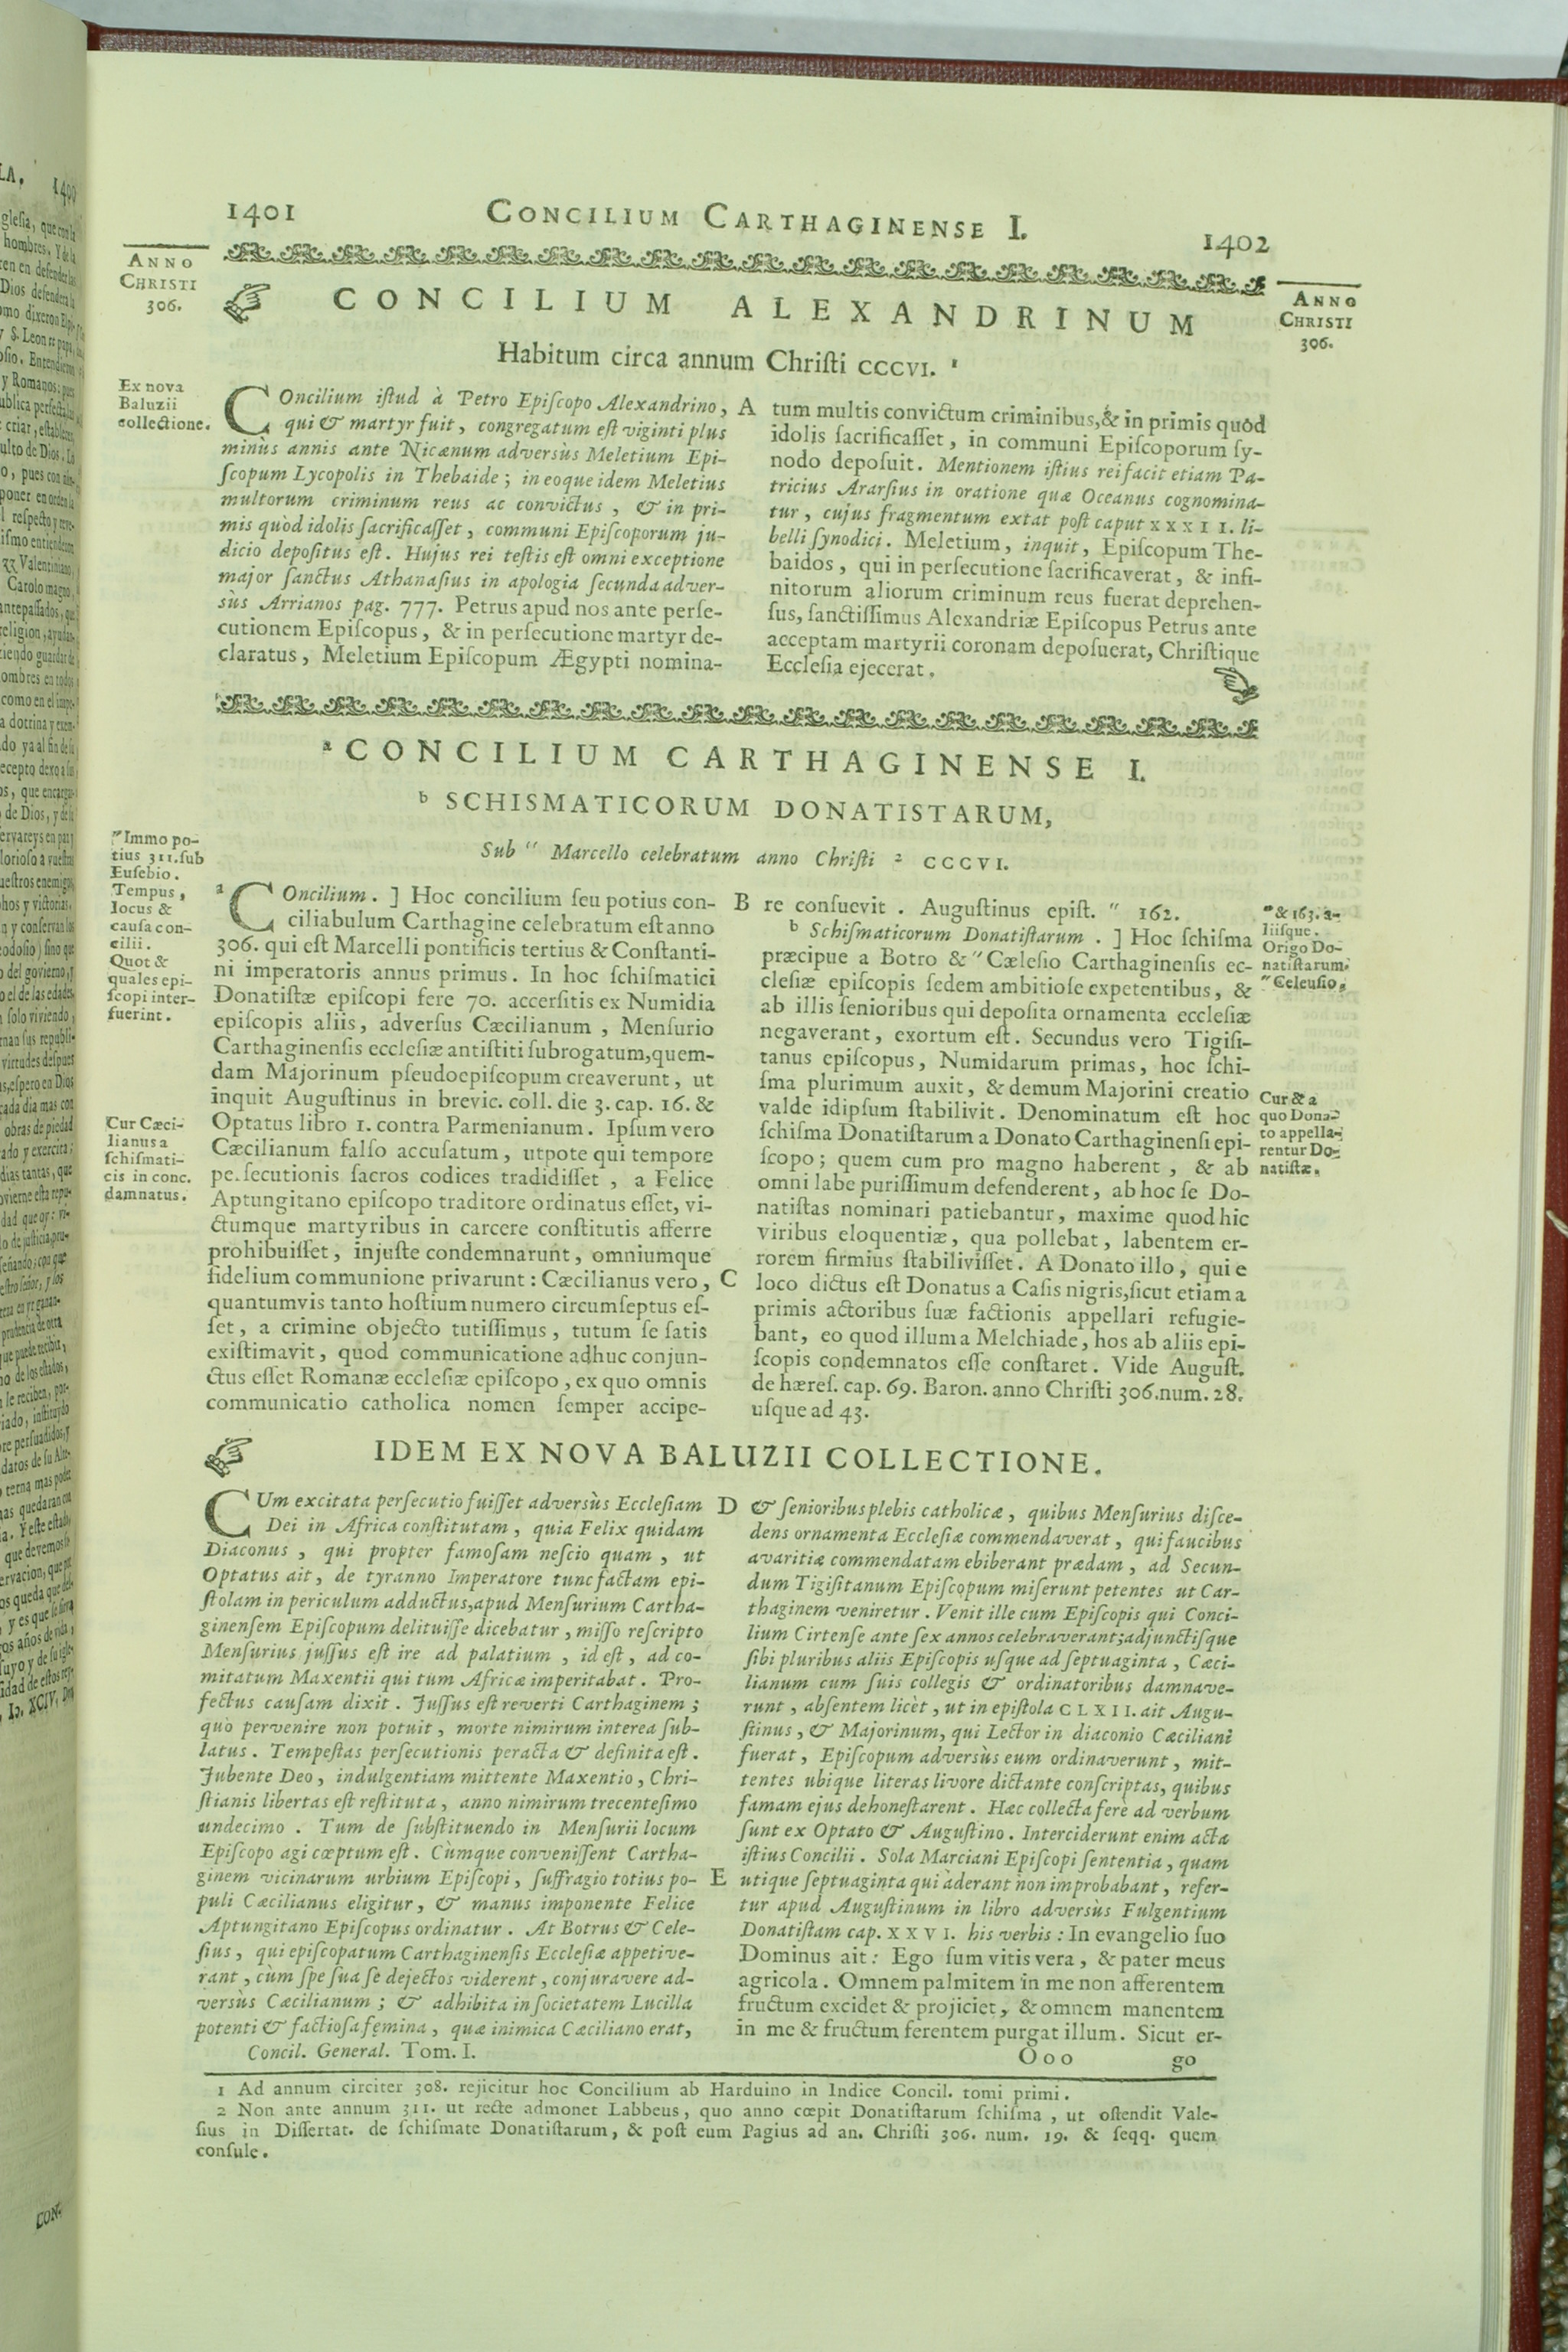 1401 CONCILIUM CARTHAGINENSE I. 1402
ANNO
CHRISTI
306.
ANNO
CHRISTI
306.
CONCILIUM ALEXANDRINUM
Habitum circa annum Chriſti CCCVI. ¹
Ex nova
Baluzii
collectione.
COncilium iſtud à Petro Epiſcopo Alexandrino,
qui & martyr fuit, congregatum eſt viginti plus
minùs annis ante Nicænum adversùs Meletium Epi-
ſcopum Lycopolis in Thebaide; in eoque idem Meletius
multorum criminum reus ac convictus, & in pri-
mis quòd idolis ſacrificaſſet, communi Epiſcoporum ju-
dicio depoſitus eſt. Hujus rei teſtis eſt omni exceptione
major ſanctus Athanaſius in apologia ſecunda adver-
sùs Arrianos pag. 777. Petrus apud nos ante perſe-
cutionem Epiſcopus, & in perſecutione martyr de-
claratus, Meletium Epiſcopum Ægypti nomina-
A tum multis convictum criminibus, & in primis quòd
idolis ſacrificaſſet, in communi Epiſcoporum ſy-
nodo depoſuit. Mentionem iſtius rei facit etiam Pa-
tricius Ararſius in oratione quæ Oceanus cognomina-
tur, cujus fragmentum extat poſt caput XXXII. li-
belli ſynodici. Meletium, inquit, Epiſcopum The-
baidos, qui in perſecutione ſacrificaverat, & infi-
nitorum aliorum criminum reus fuerat deprehen-
ſus, ſanctiſſimus Alexandriæ Epiſcopus Petrus ante
acceptam martyrii coronam depoſuerat, Chriſtique
Eccleſia ejecerat.
ᵃ CONCILIUM CARTHAGINENSE I.
ᵇ SCHISMATICORUM DONATISTARUM,
Sub " Marcello celebratum anno Chriſti ² CCCVI.
" Immo po-
tius 311. ſub
Euſebio.
Tempus,
locus &
cauſa con-
cilii.
Quot &
quales epi-
ſcopi inter-
fuerint.
Cur Cæci-
lianus a
ſchiſmati-
cis in conc.
damnatus.
ᵃ COncilium. ] Hoc concilium ſeu potius con-
ciliabulum Carthagine celebratum eſt anno
306. qui eſt Marcelli pontificis tertius & Conſtanti-
ni imperatoris annus primus. In hoc ſchiſmatici
Donatiſtæ epiſcopi fere 70. accerſitis ex Numidia
epiſcopis aliis, adverſus Cæcilianum, Menſurio
Carthaginenſis eccleſiæ antiſtiti ſubrogatum, quem-
dam Majorinum pſeudoepiſcopum creaverunt, ut
inquit Auguſtinus in brevic. coll. die 3. cap. 16. &
Optatus libro 1. contra Parmenianum. Ipſum vero
Cæcilianum falſo accuſatum, utpote qui tempore
pe.ſecutionis ſacros codices tradidiſſet, a Felice
Aptungitano epiſcopo traditore ordinatus eſſet, vi-
ctumque martyribus in carcere conſtitutis afferre
prohibuiſſet, injuſte condemnarunt, omniumque
fidelium communione privarunt: Cæcilianus vero,
quantumvis tanto hoſtium numero circumſeptus eſ-
ſet, a crimine objecto tutiſſimus, tutum ſe ſatis
exiſtimavit, quod communicatione adhuc conjun-
ctus eſſet Romanæ eccleſiæ epiſcopo, ex quo omnis
communicatio catholica nomen ſemper accipe-
B re conſuevit. Auguſtinus epiſt. " 162.
ᵇ Schiſmaticorum Donatiſtarum. ] Hoc ſchiſma
præcipue a Botro & " Cæleſio Carthaginenſis ec-
cleſiæ epiſcopis ſedem ambitioſe expetentibus, &
ab illis ſenioribus qui depoſita ornamenta eccleſiæ
negaverant, exortum eſt. Secundus vero Tigiſi-
tanus epiſcopus, Numidarum primas, hoc ſchi-
ſma plurimum auxit, & demum Majorini creatio
valde idipſum ſtabilivit. Denominatum eſt hoc
ſchiſma Donatiſtarum a Donato Carthaginenſi epi-
ſcopo; quem cum pro magno haberent, & ab
omni labe puriſſimum defenderent, ab hoc ſe Do-
natiſtas nominari patiebantur, maxime quod hic
viribus eloquentiæ, qua pollebat, labentem er-
rorem firmius ſtabiliviſſet. A Donato illo, qui e
C loco dictus eſt Donatus a Caſis nigris, ſicut etiam a
primis actoribus ſuæ factionis appellari refugie-
bant, eo quod illum a Melchiade, hos ab aliis epi-
ſcopis condemnatos eſſe conſtaret. Vide Auguſt.
de hæreſ. cap. 69. Baron. anno Chriſti 306. num. 28.
uſque ad 43.
" & 163. a-
liiſque.
Origo Do-
natiſtarum.
" Celeuſio.
Cur & a
quo Dona-
to appella-
rentur Do-
natiſtæ.
IDEM EX NOVA BALUZII COLLECTIONE.
CUm excitata perſecutio fuiſſet adversùs Eccleſiam
Dei in Africa conſtitutam, quia Felix quidam
Diaconus, qui propter famoſam neſcio quam, ut
Optatus ait, de tyranno Imperatore tunc factam epi-
ſtolam in periculum adductus, apud Menſurium Cartha-
ginenſem Epiſcopum delituiſſe dicebatur, miſſo reſcripto
Menſurius juſſus eſt ire ad palatium, id eſt, ad co-
mitatum Maxentii qui tum Africæ imperitabat. Pro-
fectus cauſam dixit. Juſſus eſt reverti Carthaginem;
quò pervenire non potuit, morte nimirum interea ſub-
latus. Tempeſtas perſecutionis peracta & definita eſt.
Jubente Deo, indulgentiam mittente Maxentio, Chri-
ſtianis libertas eſt reſtituta, anno nimirum trecenteſimo
undecimo. Tum de ſubſtituendo in Menſurii locum
Epiſcopo agi cœptum eſt. Cùmque conveniſſent Cartha-
ginem vicinarum urbium Epiſcopi, ſuffragio totius po-
puli Cæcilianus eligitur, & manus imponente Felice
Aptungitano Epiſcopus ordinatur. At Botrus & Cele-
ſius, qui epiſcopatum Carthaginenſis Eccleſiæ appetive-
rant, cùm ſpe ſua ſe dejectos viderent, conjuravere ad-
versùs Cæcilianum; & adhibita in ſocietatem Lucilla
potenti & factioſa femina, quæ inimica Cæciliano erat,
Concil. General. Tom. I.
D & ſenioribus plebis catholicæ, quibus Menſurius diſce-
dens ornamenta Eccleſiæ commendaverat, qui faucibus
avaritiæ commendatam ebiberant prædam, ad Secun-
dum Tigiſitanum Epiſcopum miſerunt petentes ut Car-
thaginem veniretur. Venit ille cum Epiſcopis qui Conci-
lium Cirtenſe ante ſex annos celebraverant; adjunctiſque
ſibi pluribus aliis Epiſcopis uſque ad ſeptuaginta, Cæci-
lianum cum ſuis collegis & ordinatoribus damnave-
runt, abſentem licèt, ut in epiſtola CLXII. ait Augu-
ſtinus, & Majorinum, qui Lector in diaconio Cæciliani
fuerat, Epiſcopum adversùs eum ordinaverunt, mit-
tentes ubique literas livore dictante conſcriptas, quibus
famam ejus dehoneſtarent. Hæc collecta ferè ad verbum
ſunt ex Optato & Auguſtino. Interciderunt enim acta
iſtius Concilii. Sola Marciani Epiſcopi ſententia, quam
E utique ſeptuaginta qui aderant non improbabant, refer-
tur apud Auguſtinum in libro adversus Fulgentium
Donatiſtam cap. XXVI. his verbis: In evangelio ſuo
Dominus ait: Ego ſum vitis vera, & pater meus
agricola. Omnem palmitem in me non afferentem
fructum excidet & projiciet, & omnem manentem
in me & fructum ferentem purgat illum. Sicut er-
Ooo go
1 Ad annum circiter 308. rejicitur hoc Concilium ab Harduino in Indice Concil. tomi primi.
2 Non ante annum 311. ut recte admonet Labbeus, quo anno cœpit Donatiſtarum ſchiſma, ut oſtendit Vale-
ſius in Diſſertat. de ſchiſmate Donatiſtarum, & poſt eum Pagius ad an. Chriſti 306. num. 19. & ſeqq. quem
conſule.